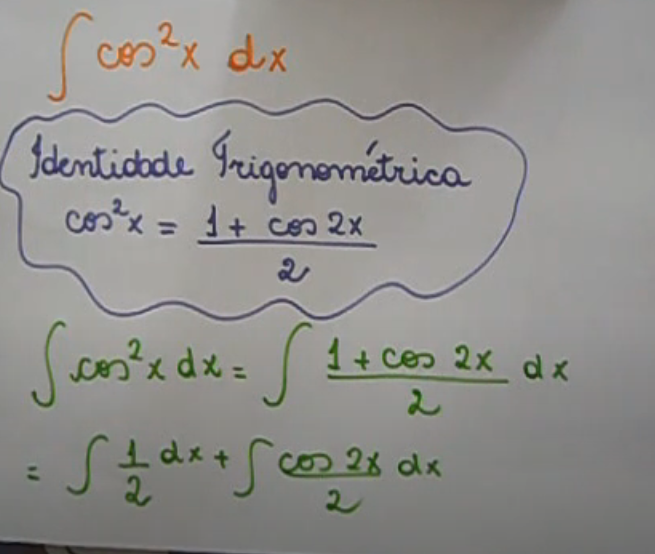 ∫ cos²x dx
Identidade Trigonométrica
cos²x = (1 + cos 2x)/2
∫ cos²x dx = ∫ (1 + cos 2x)/2 dx
= ∫ 1/2 dx + ∫ (cos 2x)/2 dx